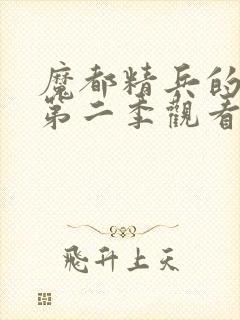 魔都精兵的
第二季觀看
飛升上天